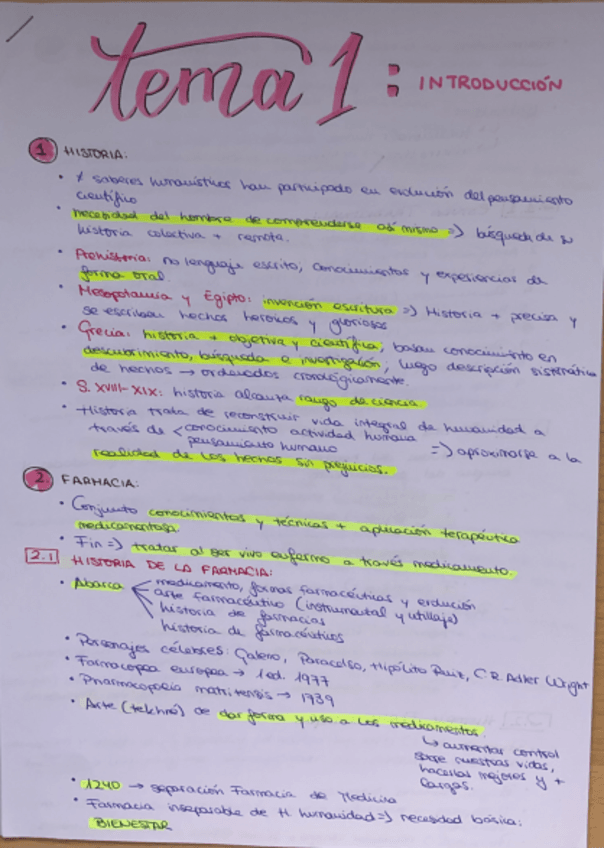 tema 1: INTRODUCCIÓN
1 HISTORIA:
• ≠ saberes humanísticos han participado en evolución del pensamiento
científico
• necesidad del hombre de comprenderse así mismo => búsqueda de su
historia colectiva + remota.
• Prehistoria: no lenguaje escrito; conocimientos y experiencias de
forma oral.
• Mesopotamia y Egipto: invención escritura => Historia + precisa y
se escriben hechos heroicos y gloriosos
• Grecia: historia + objetiva y científica, basan conocimiento en
descubrimiento, búsqueda e investigación, luego descripción sistemática
de hechos → ordenados cronológicamente.
• S. XVIII-XIX: historia alcanza rango de ciencia
• Historia trata de reconstruir vida integral de humanidad a
través de < conocimiento actividad humana
pensamiento humano => aproximarse a la
realidad de los hechos sin prejuicios.
2 FARMACIA:
• Conjunto conocimientos y técnicas + aplicación terapéutica
medicamentosa
• Fin => tratar al ser vivo enfermo a través medicamento.
2.1 HISTORIA DE LA FARMACIA:
• Abarca medicamento, formas farmacéuticas y evolución
arte farmacéutico (instrumental y utillaje)
historia de farmacias
historia de farmacéuticos
• Personajes célebres: Galeno, Paracelso, Hipólito Ruiz, C.R. Adler Wright
• Farmacopea europea → 1 ed. 1977
• Pharmacopoeia matritensis → 1739
• Arte (tekhné) de dar forma y uso a los medicamentos.
↳ aumentar control
sobre nuestras vidas,
hacerlas mejores y +
largas.
• 1240 → separación Farmacia de Medicina
• Farmacia inseparable de H humanidad => necesidad básica:
BIENESTAR